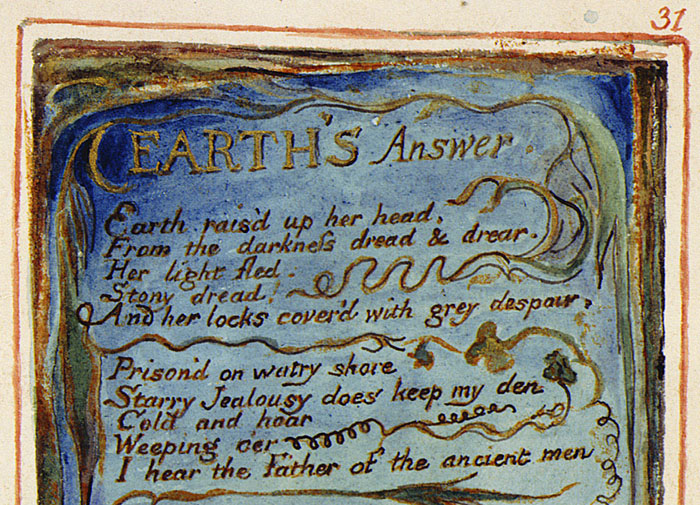 31
EARTH'S Answer.
Earth rais'd up her head,
From the darkneſs dread & drear.
Her light fled.
Stony dread!
And her locks cover'd with grey despair.
Prison'd on watry shore
Starry Jealousy does keep my den
Cold and hoar
Weeping oer
I hear the Father of the ancient men